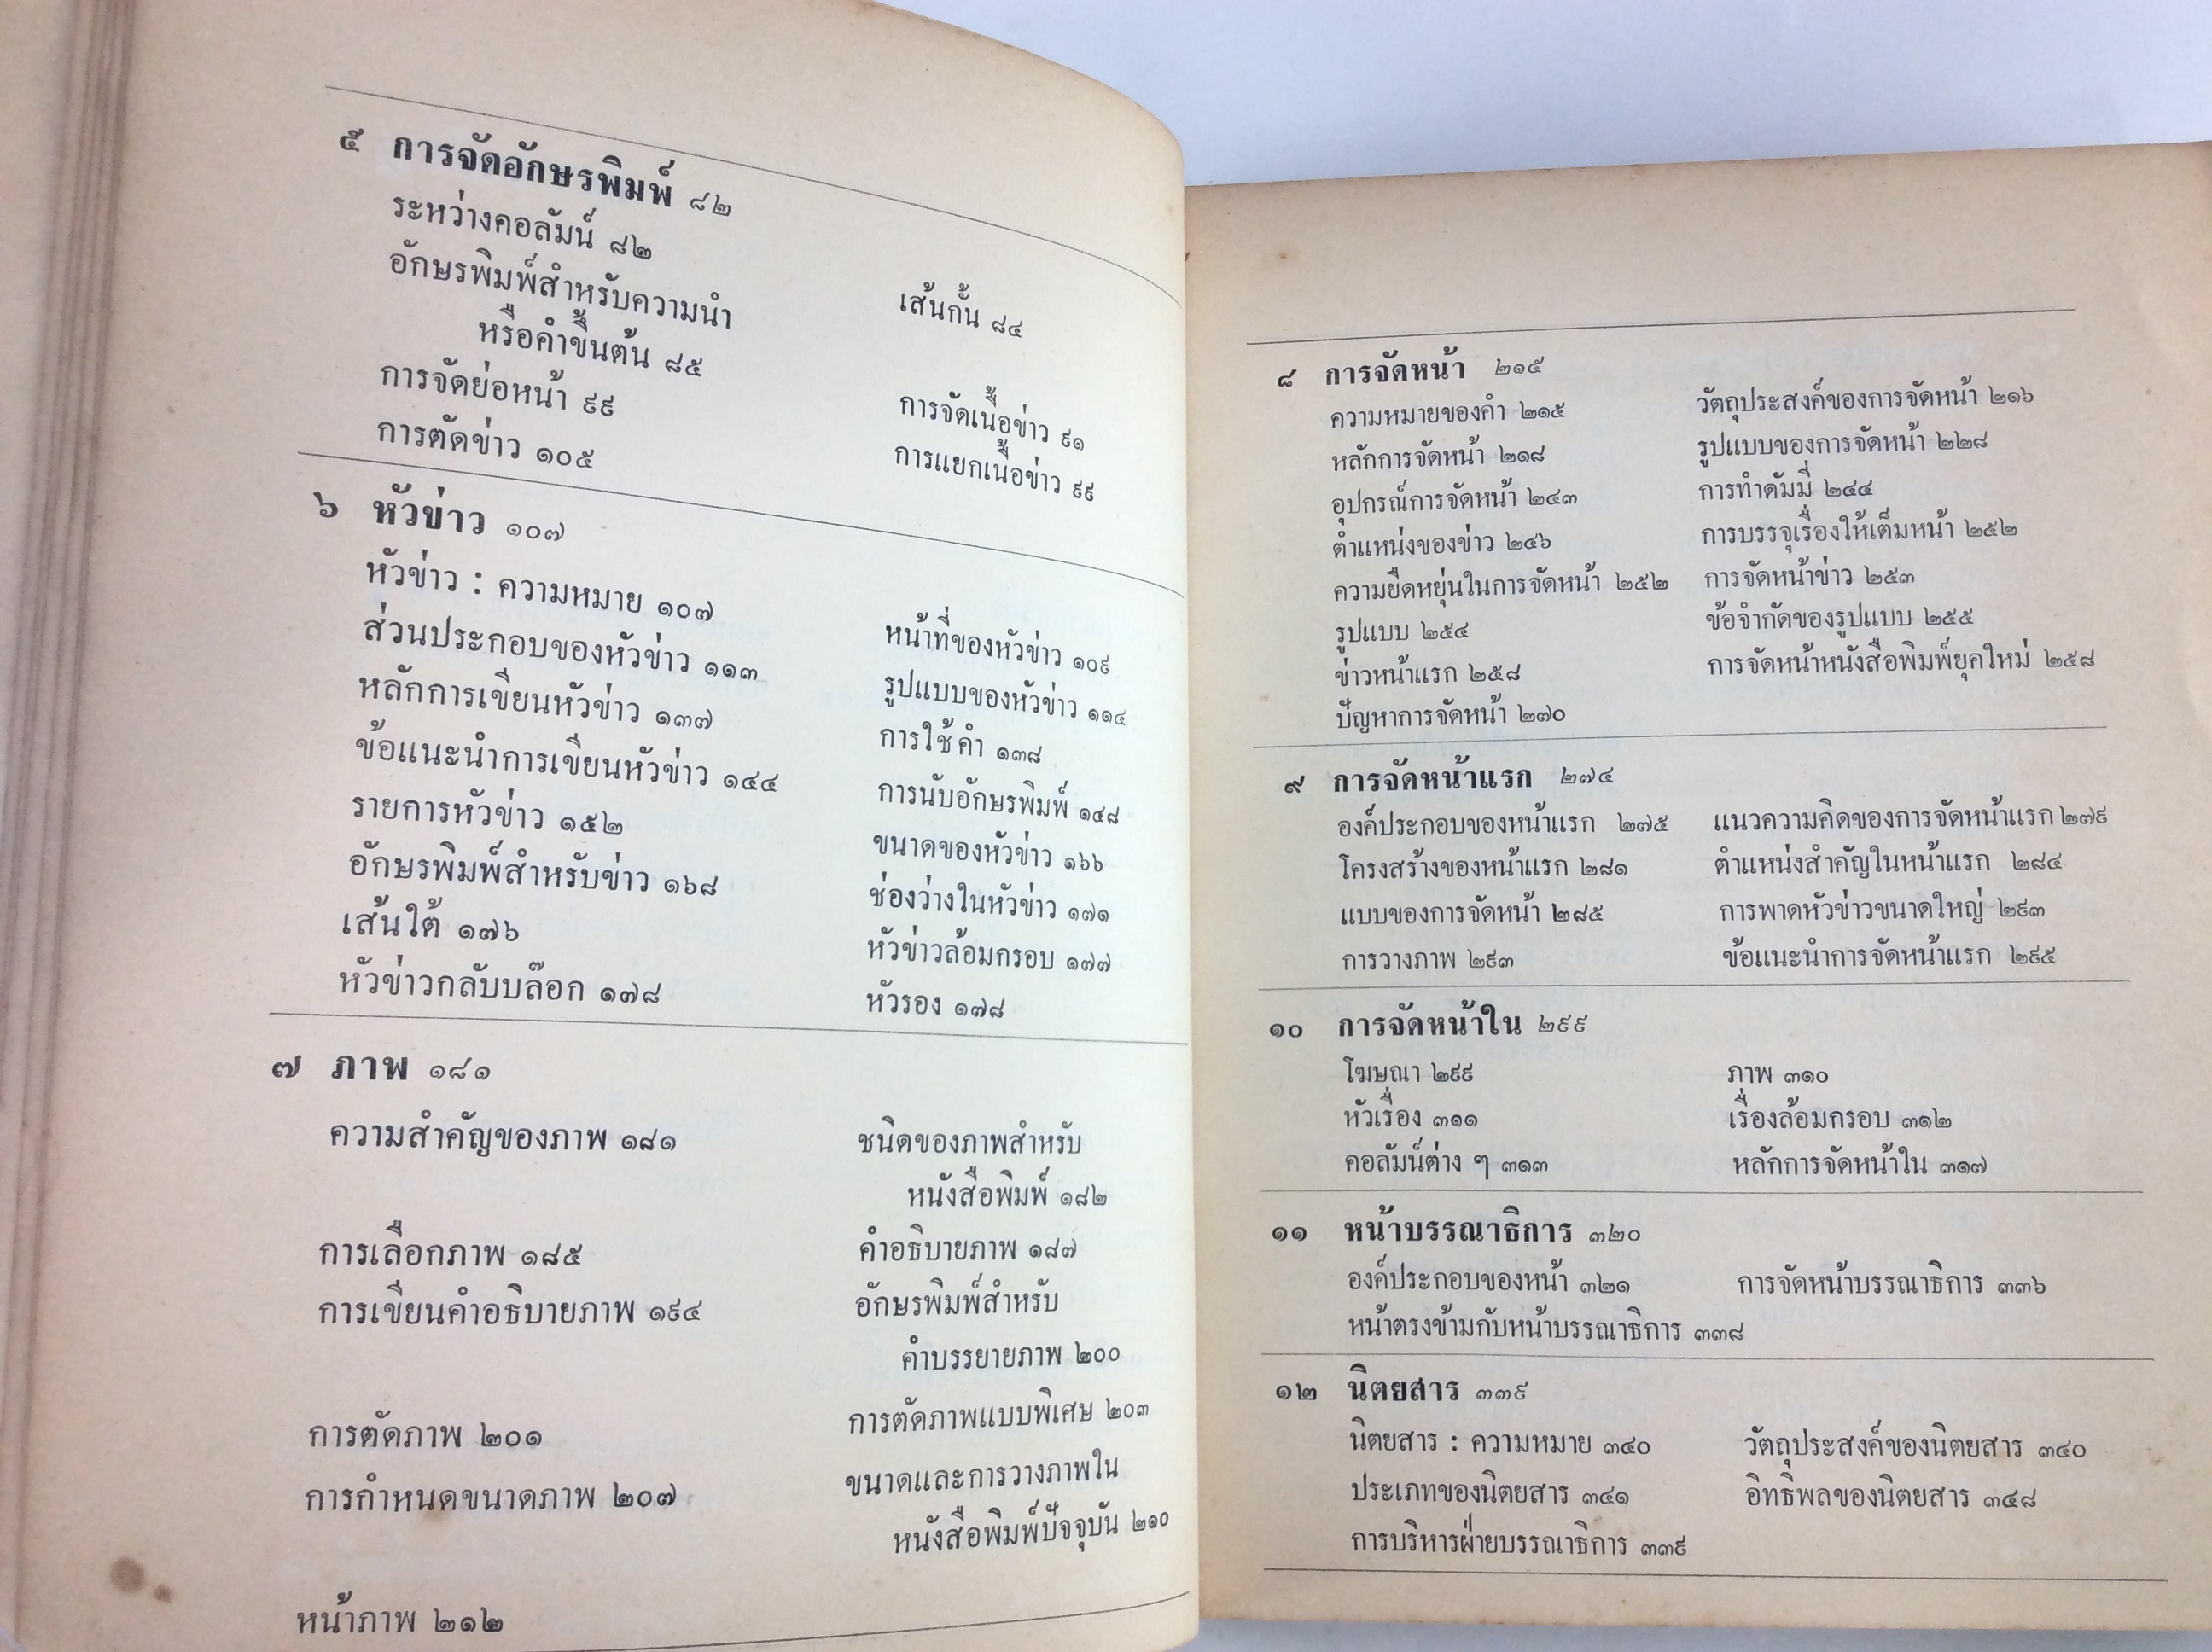 ๕ การจัดอักษรพิมพ์ ๘๒
ระหว่างคอลัมน์ ๘๒
เส้นกั้น ๘๔
อักษรพิมพ์สำหรับความนำ
หรือคำขึ้นต้น ๘๕
การจัดเนื้อข่าว ๙๑
การจัดย่อหน้า ๙๙
การแยกเนื้อข่าว ๙๙
การตัดข่าว ๑๐๕
๖ หัวข่าว ๑๐๗
หัวข่าว : ความหมาย ๑๐๗
หน้าที่ของหัวข่าว ๑๐๙
ส่วนประกอบของหัวข่าว ๑๑๓
รูปแบบของหัวข่าว ๑๑๔
หลักการเขียนหัวข่าว ๑๓๗
การใช้คำ ๑๓๘
ข้อแนะนำการเขียนหัวข่าว ๑๔๔
การนับอักษรพิมพ์ ๑๔๘
รายการหัวข่าว ๑๕๒
ขนาดของหัวข่าว ๑๖๖
อักษรพิมพ์สำหรับข่าว ๑๖๘
ช่องว่างในหัวข่าว ๑๗๑
เส้นใต้ ๑๗๖
หัวข่าวล้อมกรอบ ๑๗๗
หัวข่าวกลับบล๊อก ๑๗๘
หัวรอง ๑๗๘
๗ ภาพ ๑๘๑
ความสำคัญของภาพ ๑๘๑
ชนิดของภาพสำหรับ
หนังสือพิมพ์ ๑๘๒
การเลือกภาพ ๑๘๕
คำอธิบายภาพ ๑๘๗
การเขียนคำอธิบายภาพ ๑๙๔
อักษรพิมพ์สำหรับ
คำบรรยายภาพ ๒๐๐
การตัดภาพ ๒๐๑
การตัดภาพแบบพิเศษ ๒๐๓
การกำหนดขนาดภาพ ๒๐๗
ขนาดและการวางภาพใน
หนังสือพิมพ์ปัจจุบัน ๒๑๐
หน้าภาพ ๒๑๒
๘ การจัดหน้า ๒๑๕
ความหมายของคำ ๒๑๕
วัตถุประสงค์ของการจัดหน้า ๒๑๖
หลักการจัดหน้า ๒๑๘
รูปแบบของการจัดหน้า ๒๒๘
อุปกรณ์การจัดหน้า ๒๔๓
การทำดัมมี่ ๒๔๔
ตำแหน่งของข่าว ๒๔๖
การบรรจุเรื่องให้เต็มหน้า ๒๕๒
ความยืดหยุ่นในการจัดหน้า ๒๕๒
การจัดหน้าข่าว ๒๕๓
รูปแบบ ๒๕๔
ข้อจำกัดของรูปแบบ ๒๕๕
ข่าวหน้าแรก ๒๕๘
การจัดหน้าหนังสือพิมพ์ยุคใหม่ ๒๕๘
ปัญหาการจัดหน้า ๒๗๐
๙ การจัดหน้าแรก ๒๗๔
องค์ประกอบของหน้าแรก ๒๗๕
แนวความคิดของการจัดหน้าแรก ๒๗๙
โครงสร้างของหน้าแรก ๒๘๑
ตำแหน่งสำคัญในหน้าแรก ๒๘๔
แบบของการจัดหน้า ๒๘๕
การพาดหัวข่าวขนาดใหญ่ ๒๙๓
การวางภาพ ๒๙๓
ข้อแนะนำการจัดหน้าแรก ๒๙๕
๑๐ การจัดหน้าใน ๒๙๙
โฆษณา ๒๙๙
ภาพ ๓๑๐
หัวเรื่อง ๓๑๑
เรื่องล้อมกรอบ ๓๑๒
คอลัมน์ต่าง ๆ ๓๑๓
หลักการจัดหน้าใน ๓๑๗
๑๑ หน้าบรรณาธิการ ๓๒๐
องค์ประกอบของหน้า ๓๒๑
การจัดหน้าบรรณาธิการ ๓๓๖
หน้าตรงข้ามกับหน้าบรรณาธิการ ๓๓๘
๑๒ นิตยสาร ๓๓๙
นิตยสาร : ความหมาย ๓๔๐
วัตถุประสงค์ของนิตยสาร ๓๔๐
ประเภทของนิตยสาร ๓๔๑
อิทธิพลของนิตยสาร ๓๔๘
การบริหารฝ่ายบรรณาธิการ ๓๓๙